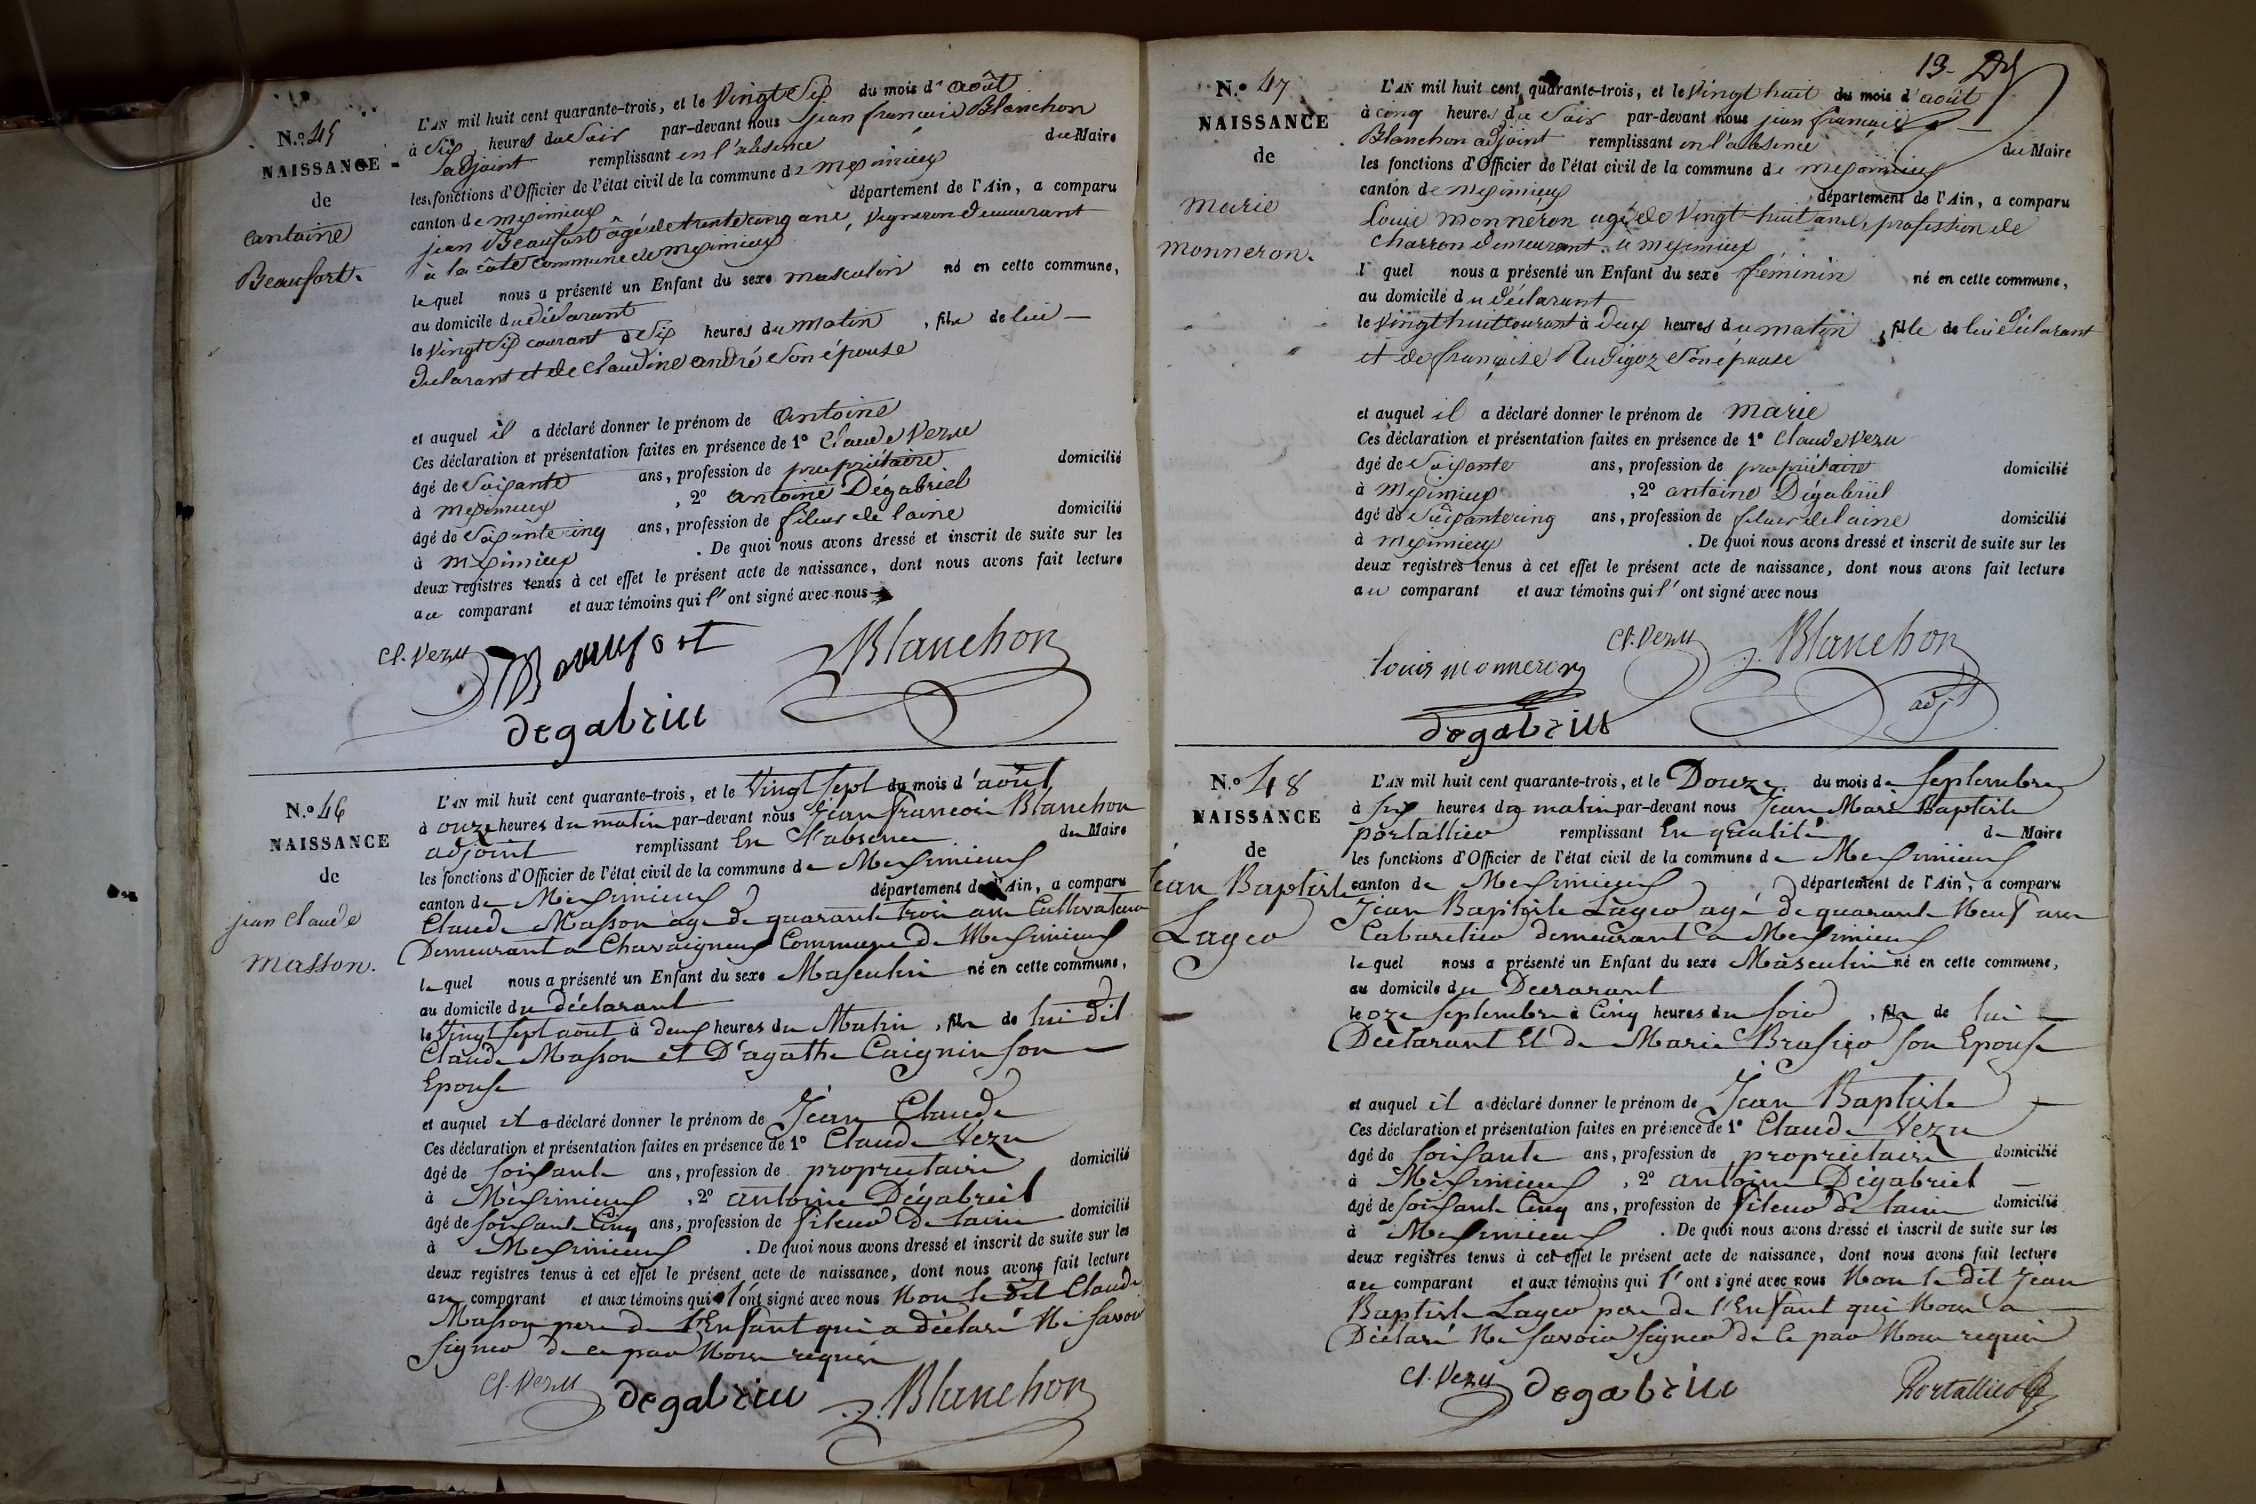 N.º 45
NAISSANCE
de
antoine
Beaufort.
L'AN mil huit cent quarante-trois, et le Vingt Six du mois d'août
à Six heures du Soir par-devant nous jean francois Blanchon
adjoint remplissant en l'absence du Maire
les fonctions d'Officier de l'état civil de la commune de meximieux
canton de meximieux département de l'Ain, a comparu
jean Beaufort âgé de trente cinq ans, Vigneron demeurant
à la côte commune de meximieux
le quel nous a présenté un Enfant du sexe masculin né en cette commune,
au domicile du déclarant
le Vingt Six courant à Six heures du matin, fils de lui
déclarant et de Claudine andré Son épouse
et auquel il a déclaré donner le prénom de antoine
Ces déclaration et présentation faites en présence de 1º Claude Vezu
âgé de Soixante ans, profession de propriétaire domicilié
à meximieux, 2º antoine Dégabriel
âgé de Soixante cinq ans, profession de fileur de laine domicilié
à meximieux. De quoi nous avons dressé et inscrit de suite sur les
deux registres tenus à cet effet le présent acte de naissance, dont nous avons fait lecture
au comparant et aux témoins qui l'ont signé avec nous
Cl. Vezu Beaufort Blanchon
degabriel
N.º 46
NAISSANCE
de
jean Claude
masson.
L'AN mil huit cent quarante-trois, et le Vingt Sept du mois d'août
à onze heures du matin par-devant nous Jean francois Blanchon
adjoint remplissant En l'absence du Maire
les fonctions d'Officier de l'état civil de la commune de Meximieux
canton de Meximieux département de l'Ain, a comparu
Claude Masson agé de quarante trois ans Cultivateur
Demeurant a Chavaigneux Commune de Meximieux
le quel nous a présenté un Enfant du sexe Masculin né en cette commune,
au domicile du déclarant
le Vingt Sept aout à deux heures du Matin, fils de lui dit
Claude Masson et D'agathe Caignin Son
Epouse
et auquel il a déclaré donner le prénom de Jean Claude
Ces déclaration et présentation faites en présence de 1º Claude Vezu
âgé de Soixante ans, profession de propriétaire domicilié
à Meximieux, 2º antoine Dégabriel
âgé de Soixante Cinq ans, profession de fileur de laine domicilié
à Meximieux. De quoi nous avons dressé et inscrit de suite sur les
deux registres tenus à cet effet le présent acte de naissance, dont nous avons fait lecture
au comparant et aux témoins qui l'ont signé avec nous Non le dit Claude
Masson pere de l'Enfant qui a déclaré Ne Savoir
Signer de ce par Nous requis
Cl. Vezu degabriel Blanchon
13
N.º 47
NAISSANCE
de
marie
monneron.
L'AN mil huit cent quarante-trois, et le Vingt huit du mois d'août
à cinq heures du Soir par-devant nous jean francois
Blanchon adjoint remplissant en l'absence du Maire
les fonctions d'Officier de l'état civil de la commune de meximieux
canton de meximieux département de l'Ain, a comparu
Louis monneron agé de Vingt huit ans, profession de
charron demeurant à meximieux
l quel nous a présenté un Enfant du sexe féminin né en cette commune,
au domicile du déclarant
le Vingt huit courant à deux heures du matin, fille de lui déclarant
et de françoise Rudigoz Son épouse
et auquel il a déclaré donner le prénom de marie
Ces déclaration et présentation faites en présence de 1º Claude Vezu
âgé de Soixante ans, profession de propriétaire domicilié
à meximieux, 2º antoine Dégabriel
âgé de Soixante cinq ans, profession de fileur de laine domicilié
à meximieux. De quoi nous avons dressé et inscrit de suite sur les
deux registres tenus à cet effet le présent acte de naissance, dont nous avons fait lecture
au comparant et aux témoins qui l'ont signé avec nous
Cl. Vezu Blanchon
louis monneron adjt
degabriel
N.º 48
NAISSANCE
de
Jean Baptiste
Lager
L'AN mil huit cent quarante-trois, et le Douze du mois de Septembre
à Six heures du matin par-devant nous Jean Marie Baptiste
portallier remplissant En qualité de Maire
les fonctions d'Officier de l'état civil de la commune de Meximieux
canton de Meximieux département de l'Ain, a comparu
Jean Baptiste Lager agé de quarante Neuf ans
Cabaretier demeurant a Meximieux
le quel nous a présenté un Enfant du sexe Masculin né en cette commune,
au domicile du Déclarant
le onze Septembre à Cinq heures du Soir, fils de lui
Déclarant Et de Marie Brasier Son Epouse
et auquel il a déclaré donner le prénom de Jean Baptiste
Ces déclaration et présentation faites en présence de 1º Claude Vezu
âgé de Soixante ans, profession de propriétaire domicilié
à Meximieux, 2º antoine Dégabriel
âgé de Soixante Cinq ans, profession de fileur de laine domicilié
à Meximieux. De quoi nous avons dressé et inscrit de suite sur les
deux registres tenus à cet effet le présent acte de naissance, dont nous avons fait lecture
au comparant et aux témoins qui l'ont signé avec nous Non le dit Jean
Baptiste Lager pere de l'Enfant qui Nous a
Déclaré Ne Savoir Signer de ce par Nous requis
Cl. Vezu degabriel Portallier